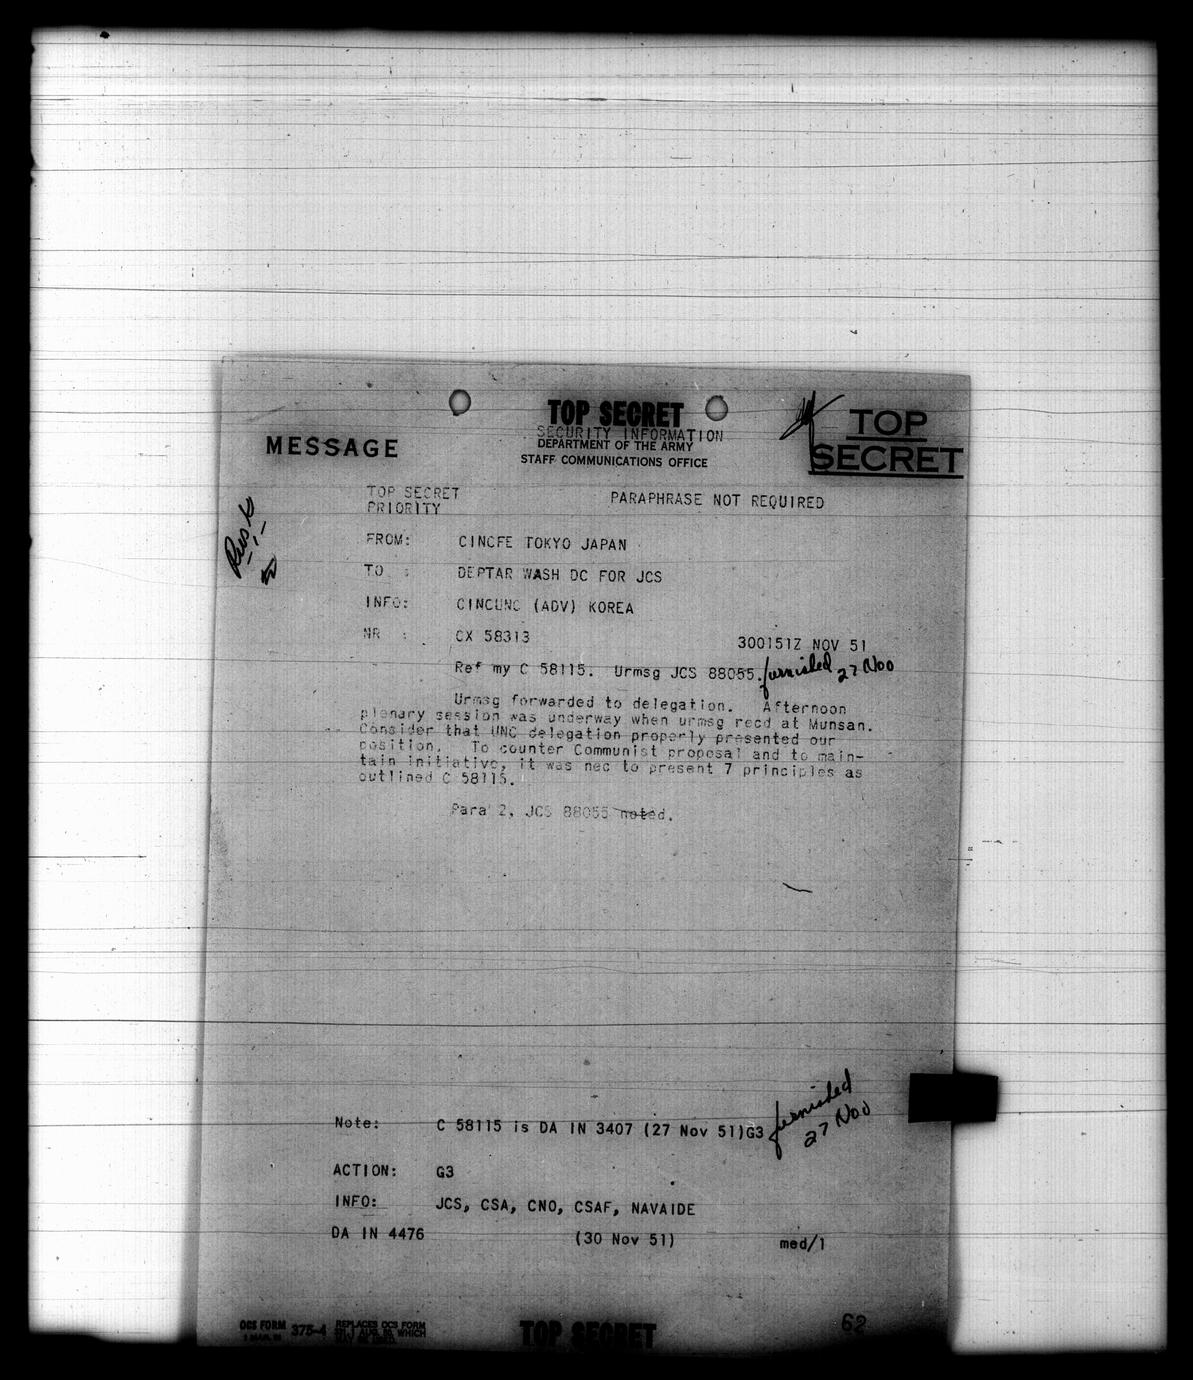 TOP SECRET
SECURITY INFORMATION
DEPARTMENT OF THE ARMY
STAFF COMMUNICATIONS OFFICE
MESSAGE
TOP
SECRET
TOP SECRET
PRIORITY
PARAPHRASE NOT REQUIRED
FROM: CINCFE TOKYO JAPAN
TO : DEPTAR WASH DC FOR JCS
INFO: CINCUNC (ADV) KOREA
NR : CX 58313 300151Z NOV 51
Ref my C 58115. Urmsg JCS 88055. furnished 27 Nov
Urmsg forwarded to delegation. Afternoon
plenary session was underway when urmsg recd at Munsan.
Consider that UNC delegation properly presented our
position. To counter Communist proposal and to main-
tain initiative, it was nec to present 7 principles as
outlined C 58115.
Para 2, JCS 88055 noted.
Note: C 58115 is DA IN 3407 (27 Nov 51)G3 furnished 27 Nov
ACTION: G3
INFO: JCS, CSA, CNO, CSAF, NAVAIDE
DA IN 4476 (30 Nov 51) med/1
OCS FORM 375-4 REPLACES OCS FORM
WHICH
TOP SECRET
62